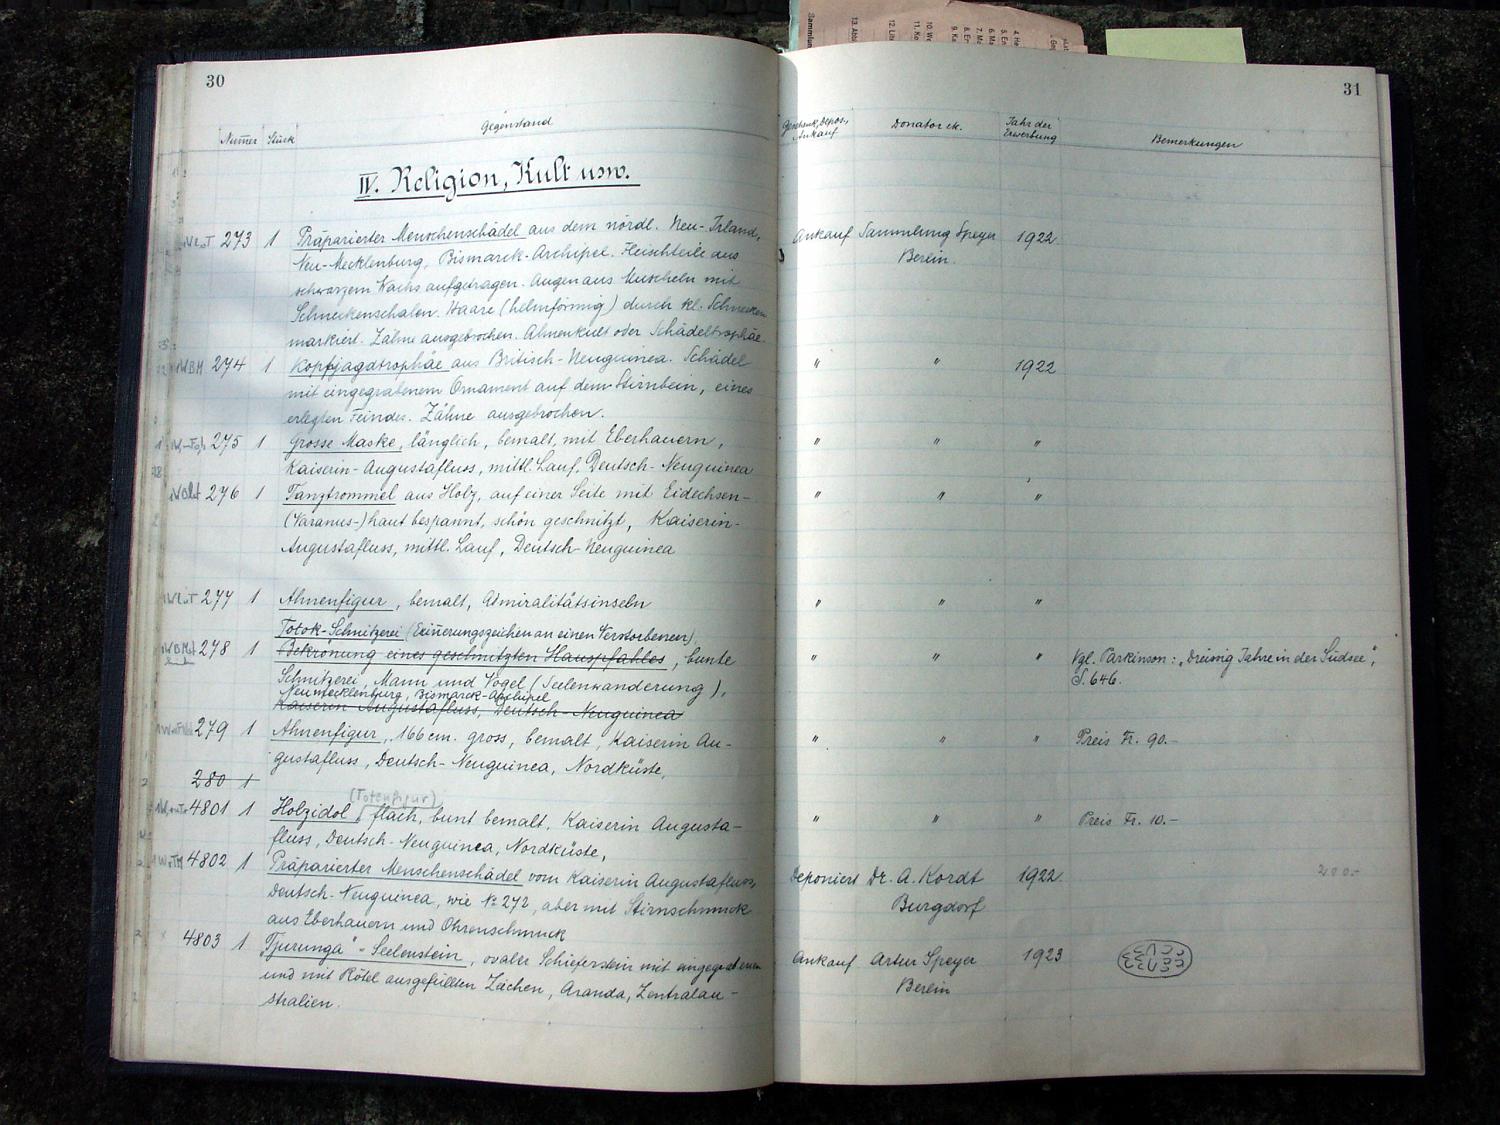 30
Numer Stück Gegenstand
IV. Religion, Kult usw.
273 1 Präparierter Menschenschädel aus dem nördl. Neu-Irland,
Neu-Mecklenburg, Bismarck-Archipel. Fleischteile aus
schwarzem Wachs aufgetragen. Augen aus Muscheln mit
Schneckenschalen. Haare (helmförmig) durch kl. Schnecken
markiert. Zähne ausgebrochen. Ahnenkult oder Schädeltrophäe.
274 1 Kopfjagdtrophäe aus Britisch-Neuguinea. Schädel
mit eingegrabenem Ornament auf dem Stirnbein, eines
erlegten Feindes. Zähne ausgebrochen.
275 1 grosse Maske, länglich, bemalt, mit Eberhauern,
Kaiserin-Augustafluss, mittl. Lauf, Deutsch-Neuguinea
276 1 Tanztrommel aus Holz, auf einer Seite mit Eidechsen-
(Varanus-)haut bespannt, schön geschnitzt, Kaiserin-
Augustafluss, mittl. Lauf, Deutsch-Neuguinea
277 1 Ahnenfigur, bemalt, Admiralitätsinseln
Totok-Schnitzerei (Erinerungszeichen an einen Verstorbenen),
278 1 Bekrönung eines geschnitzten Hauspfahles, bunte
Schnitzerei, Mann und Vogel (Seelenwanderung),
Neumecklenburg, Bismarck-Archipel
Kaiserin Augustafluss, Deutsch-Neuguinea
279 1 Ahnenfigur, 166 cm. gross, bemalt, Kaiserin Au-
gustafluss, Deutsch-Neuguinea, Nordküste,
280 1
(Totenfigur)
4801 1 Holzidol, flach, bunt bemalt, Kaiserin Augusta-
fluss, Deutsch-Neuguinea, Nordküste,
4802 1 Präparierter Menschenschädel vom Kaiserin Augustafluss,
Deutsch-Neuguinea, wie № 272, aber mit Stirnschmuck
aus Eberhauern und Ohrenschmuck
4803 1 "Tjurunga"-Seelenstein, ovaler Schieferstein mit eingegrabenen
und mit Rötel ausgefüllten Zeichen, Aranda, Zentralau-
stralien.
31
Geschenk, Depos., Ankauf Donator ec. Jahr der Erwerbung Bemerkungen
Ankauf Sammlung Speyer 1922
Berlin.
" " 1922
" " "
" " "
" " "
" " " Vgl. Parkinson: „Dreissig Jahre in der Südsee",
S. 646.
" " " Preis Fr. 90.-
" " " Preis Fr. 10.-
Deponiert Dr. A. Kordt 1922
Burgdorf
Ankauf Artur Speyer 1923
Berlin